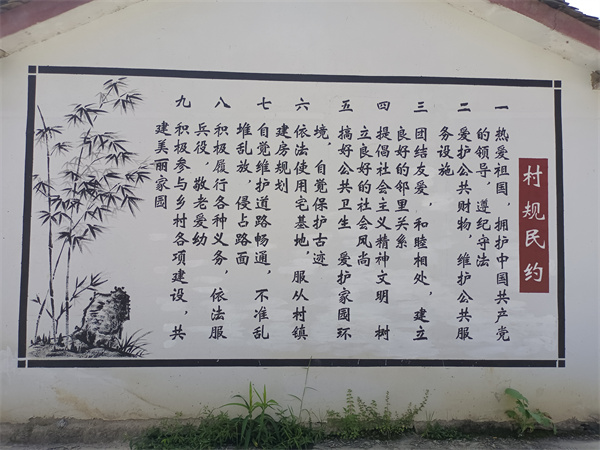 村规民约
一 热爱祖国，拥护中国共产党
的领导，遵纪守法
二 爱护公共财物，维护公共服
务设施
三 团结友爱，和睦相处，建立
良好的邻里关系
四 提倡社会主义精神文明 树
立良好的社会风尚
五 搞好公共卫生 爱护家园环
境，自觉保护古迹
六 依法使用宅基地，服从村镇
建房规划
七 自觉维护道路畅通，不准乱
堆乱放，侵占路面
八 积极履行各种义务，依法服
兵役，敬老爱幼
九 积极参与乡村各项建设，共
建美丽家园